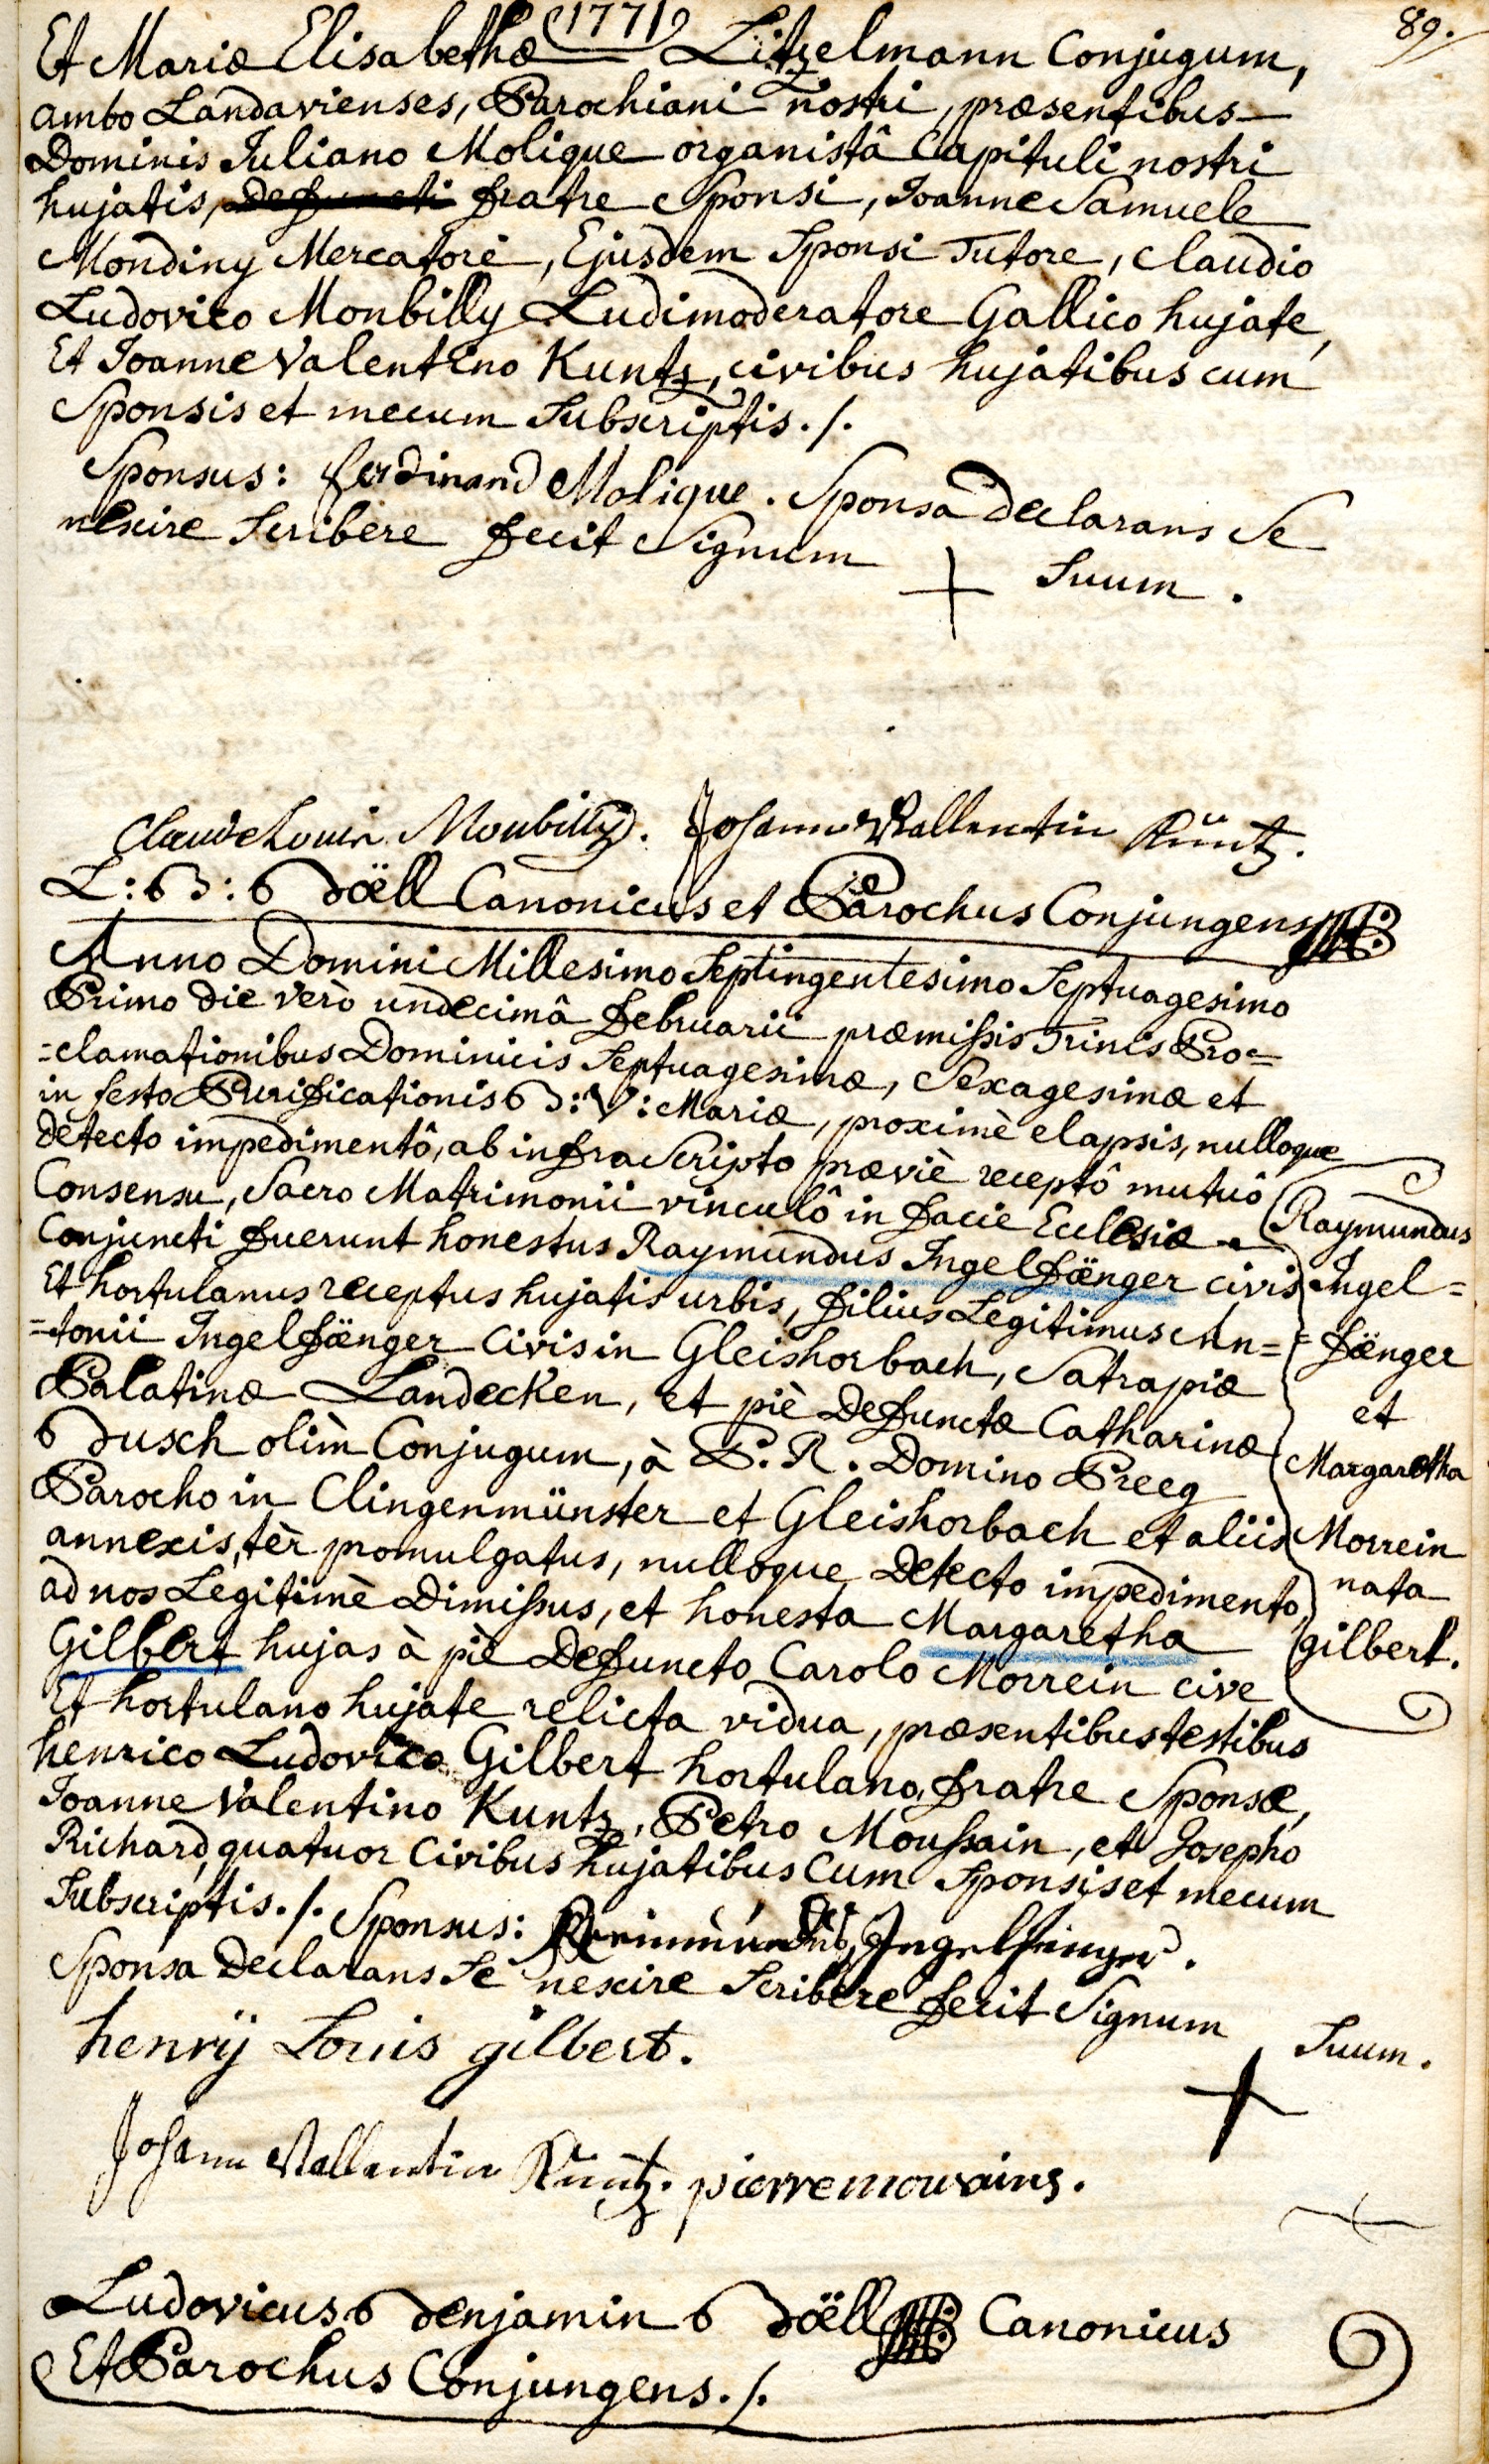 1771 89.
Et Mariæ Elisabethæ Litzelmann Conjugum,
ambo Landavienses, Parochiani nostri, præsentibus
Dominis Juliano Molique organistâ Capituli nostri
hujatis, defuncti fratre Sponsi, Joanne Samuele
Mondiny Mercatore, Ejusdem Sponsi Tutore, Claudio
Ludovico Monbilly Ludimoderatore Gallico hujate,
Et Joanne Valentino Kuntz, civibus hujatibus cum
Sponsis et mecum Subscriptis ./.
Sponsus: ferdinand Molique. Sponsa declarans Se
nescire Scribere fecit Signum + Suum.
Claude Louis Monbilly. Johann Vallentin Küntz.
L: B: Böell Canonicus et Parochus Conjungens
Anno Domini Millesimo Septingentesimo Septuagesimo
Primo die verò undecimâ februarii præmissis Trinis Pro=
=clamationibus Dominicis Septuagesimæ, Sexagesimæ et
in festo Purificationis B: V: Mariæ, proximè elapsis, nulloque
detecto impedimentô, ab infra Scripto præviè receptô mutuô
Consensu, Sacro Matrimonii vinculô in facie Ecclesiæ
Conjuncti fuerunt honestus Raymundus Ingelfænger civis
Et hortulanus receptus hujatis urbis, filius Legitimus An=
=tonii Ingelfænger Civis in Gleishorbach, Satrapiæ
Palatinæ Landecken, et piè defunctæ Catharinæ
Busch olim Conjugum, à P. R. Domino Preeg
Parocho in Clingenmünster et Gleishorbach et aliis
annexis, tèr promulgatus, nulloque detecto impedimento,
ad nos Legitimè dimissus, et honesta Margaretha
Gilbert hujas à piè defuncto Carolo Morrein cive
Et hortulano hujate relicta vidua, præsentibus testibus
henrico Ludovico Gilbert hortulano, fratre Sponsæ,
Joanne Valentino Kuntz, Petro Moussain, et Josepho
Richard, quatuor Civibus hujatibus Cum Sponsis et mecum
Subscriptis ./. Sponsus: Ingelfinger.
Sponsa declarans Se nescire Scribere fecit Signum + Suum.
Raymundus
Ingel=
=fænger
et
Margaretha
Morrein
nata
gilbert.
henrÿ Louis gilbert.
Johann Vallentin Küntz. pierre mouvains.
Ludovicus Benjamin Böell Canonicus
Et Parochus Conjungens ./.